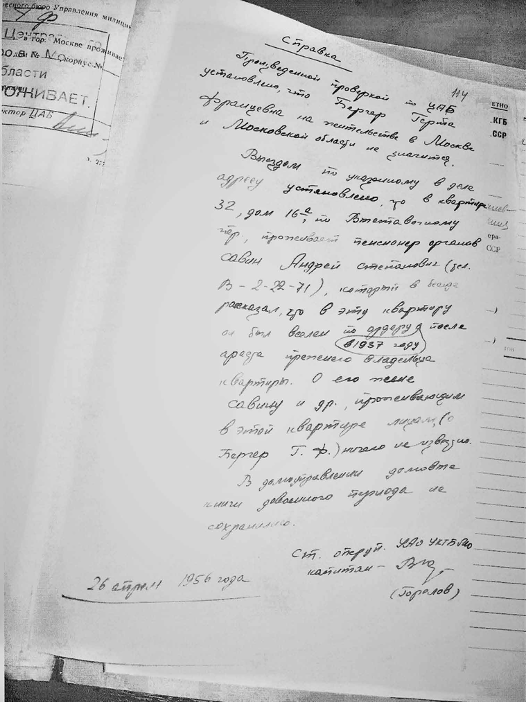 ресного бюро Управления милиции
в гор. Москве проживает
дом № корпус №
области
ПРОЖИВАЕТ.
ЦАБ
114
Справка
Произведенной проверкой по ЦАБ
установлено, что Бергер Герта
Францевна на жительстве в Москве
и Московской области не значится.
Выездом по указанному в деле
адресу установлено, что в квартире
32, дом 16а, по
пер, проживает пенсионер органов
Савин Андрей Степанович (тел.
В-2-22-71), который в беседе
рассказал, что в эту квартиру
он был вселен по ордеру после
в 1937 году
ареста прежнего владельца
квартиры. О его жене
Савину и др., проживающим
в этой квартире лицам, (о
Бергер Г. Ф.) ничего не известно.
В домоуправлении домовые
книги довоенного периода не
сохранились.
Ст. оперуп.
капитан -
(Горелов)
26 апреля 1956 года
ЕТНО
КГБ
ССР
ССР